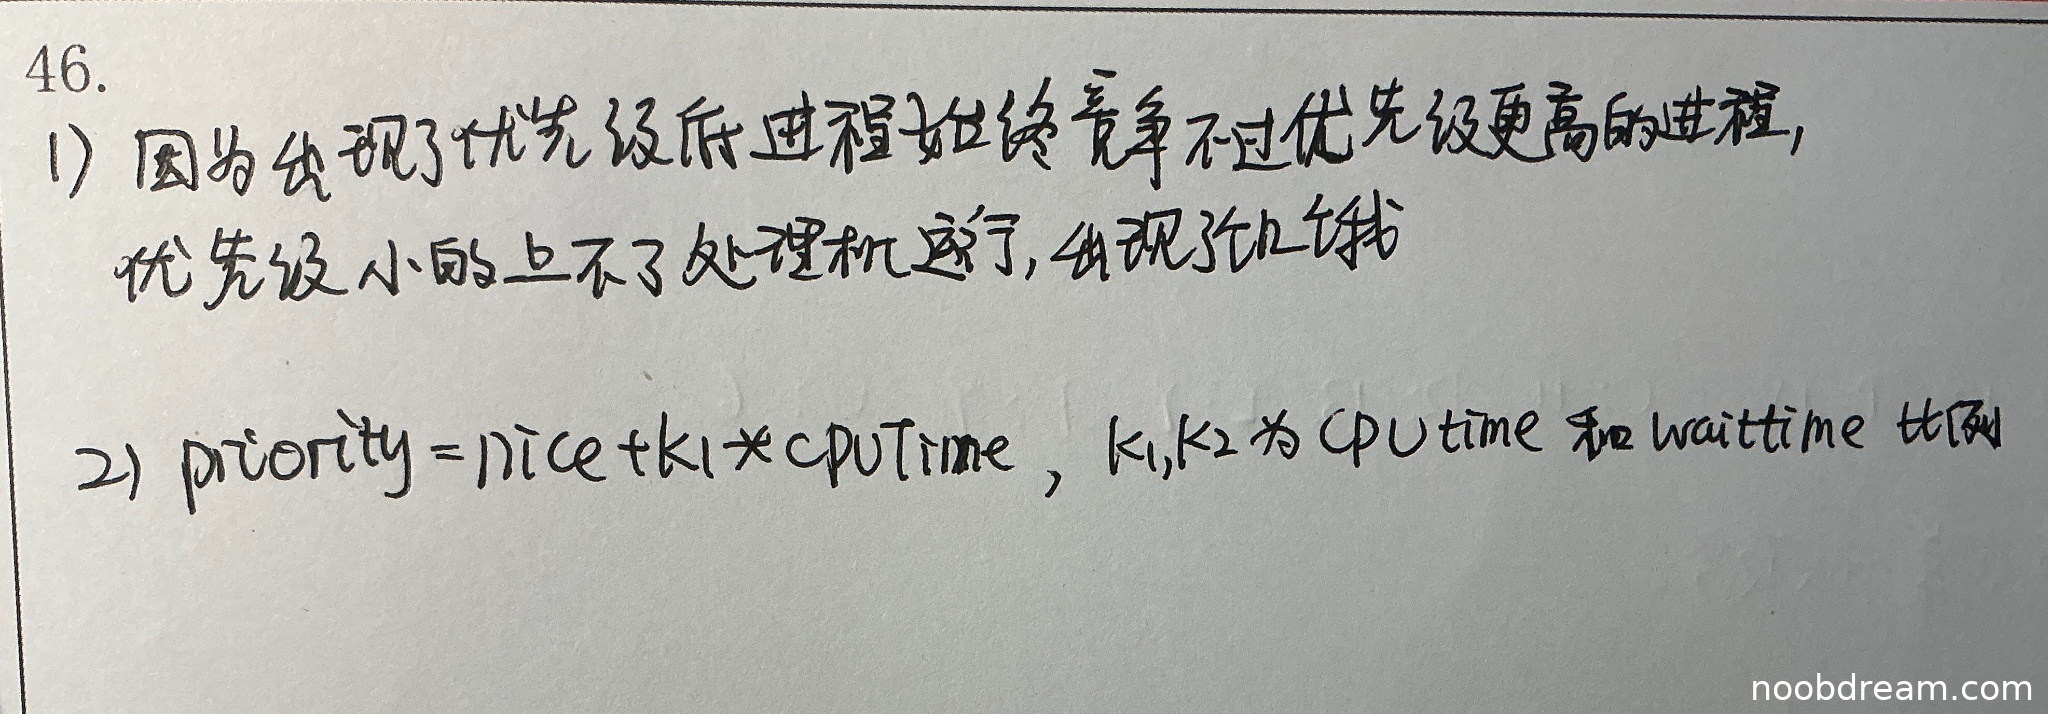 46.
1) 因为出现了优先级低进程始终竞争不过优先级更高的进程,
优先级小的上不了处理机运行, 出现了饥饿
2) priority = nice + k1 * cpuTime , k1,k2 为 cpu time 和 waittime 比例
noobdream.com